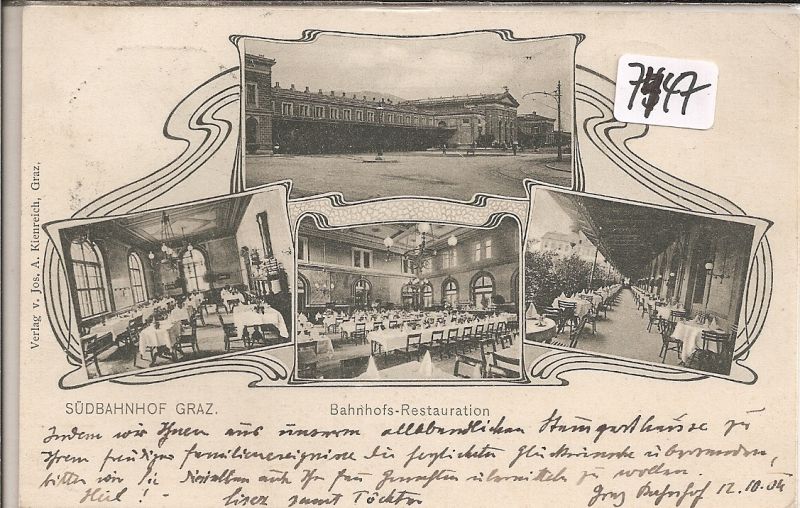 7747
Verlag v. Jos. A. Kienreich, Graz.
SÜDBAHNHOF GRAZ.
Bahnhofs-Restauration
Indem wir Ihnen aus unserem allabendlichen Stammgasthause zu
Ihrem freudigen Familienereignisse die herzlichsten Glückwünsche übersenden,
bitten wir Sie dieselben auch Ihr Frau Gemahlin übermitteln zu wollen.
Heil! - samt Töchter Graz Bahnhof 12.10.04